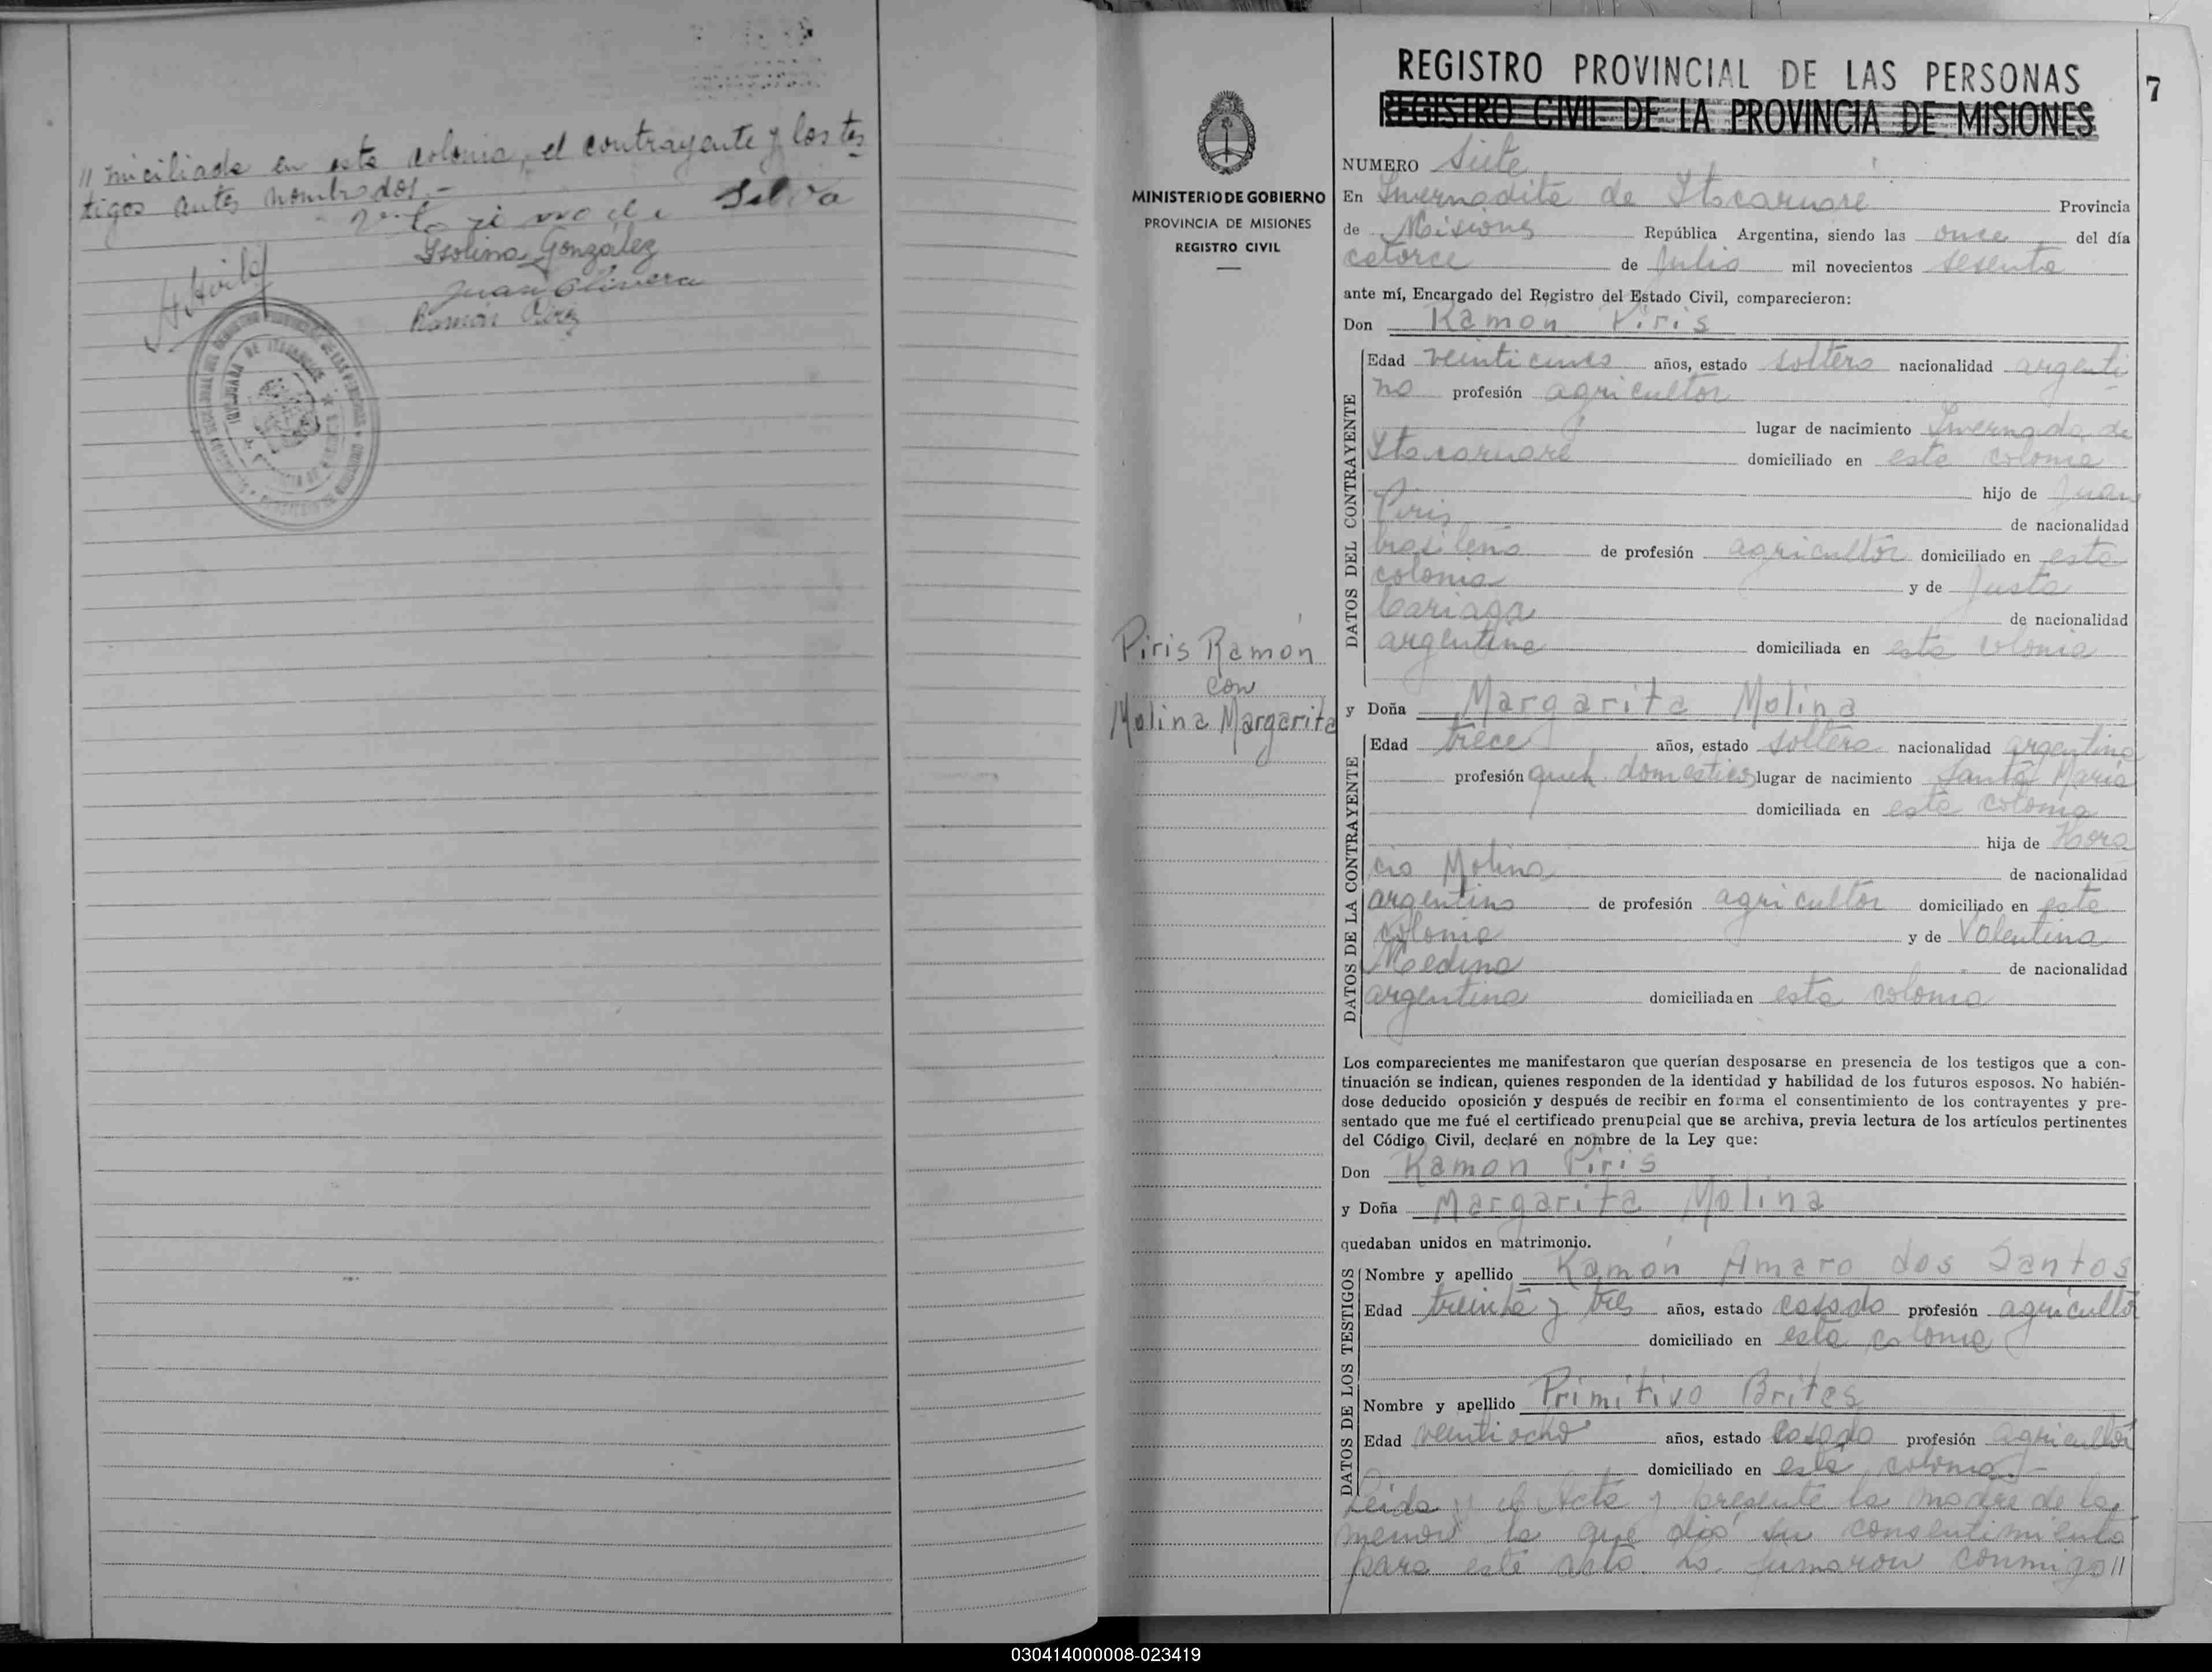 // miciliada en esta colonia, el contrayente y los tes
tigos antes nombrados.-
Silva
Isolina González
Juan Olivera
Ramón
A. Avila
MINISTERIO DE GOBIERNO
PROVINCIA DE MISIONES
REGISTRO CIVIL
Piris Ramón
con
Molina Margarita
REGISTRO PROVINCIAL DE LAS PERSONAS
7
REGISTRO CIVIL DE LA PROVINCIA DE MISIONES
NUMERO Siete
En Invernadita de Itacaruaré Provincia
de Misiones República Argentina, siendo las once del día
catorce de Julio mil novecientos sesenta
ante mí, Encargado del Registro del Estado Civil, comparecieron:
Don Ramon Piris
DATOS DEL CONTRAYENTE
Edad veinticinco años, estado soltero nacionalidad argenti
no profesión agricultor
lugar de nacimiento Invernada de
Itacaruaré domiciliado en esta colonia
hijo de Juan
Piris de nacionalidad
brasileño de profesión agricultor domiciliado en esta
colonia y de Justa
Cariaga de nacionalidad
argentina domiciliada en esta colonia
y Doña Margarita Molina
DATOS DE LA CONTRAYENTE
Edad trece años, estado soltera nacionalidad argentina
profesión queh. domesticos lugar de nacimiento Santa María
domiciliada en esta colonia
hija de Hora
cio Molina de nacionalidad
argentino de profesión agricultor domiciliado en esta
colonia y de Valentina
Medina de nacionalidad
argentina domiciliada en esta colonia
Los comparecientes me manifestaron que querían desposarse en presencia de los testigos que a con-
tinuación se indican, quienes responden de la identidad y habilidad de los futuros esposos. No habién-
dose deducido oposición y después de recibir en forma el consentimiento de los contrayentes y pre-
sentado que me fué el certificado prenupcial que se archiva, previa lectura de los artículos pertinentes
del Código Civil, declaré en nombre de la Ley que:
Don Ramon Piris
y Doña Margarita Molina
quedaban unidos en matrimonio.
DATOS DE LOS TESTIGOS
Nombre y apellido Ramón Amaro dos Santos
Edad treinta y tres años, estado casado profesión agricultor
domiciliado en esta colonia
Nombre y apellido Primitivo Brites
Edad veintiocho años, estado casado profesión agricultor
domiciliado en esta colonia.-
Leida el Acta y presente la madre de la
menor la que dió su consentimiento
para este acto. La firmaron conmigo //
030414000008-023419